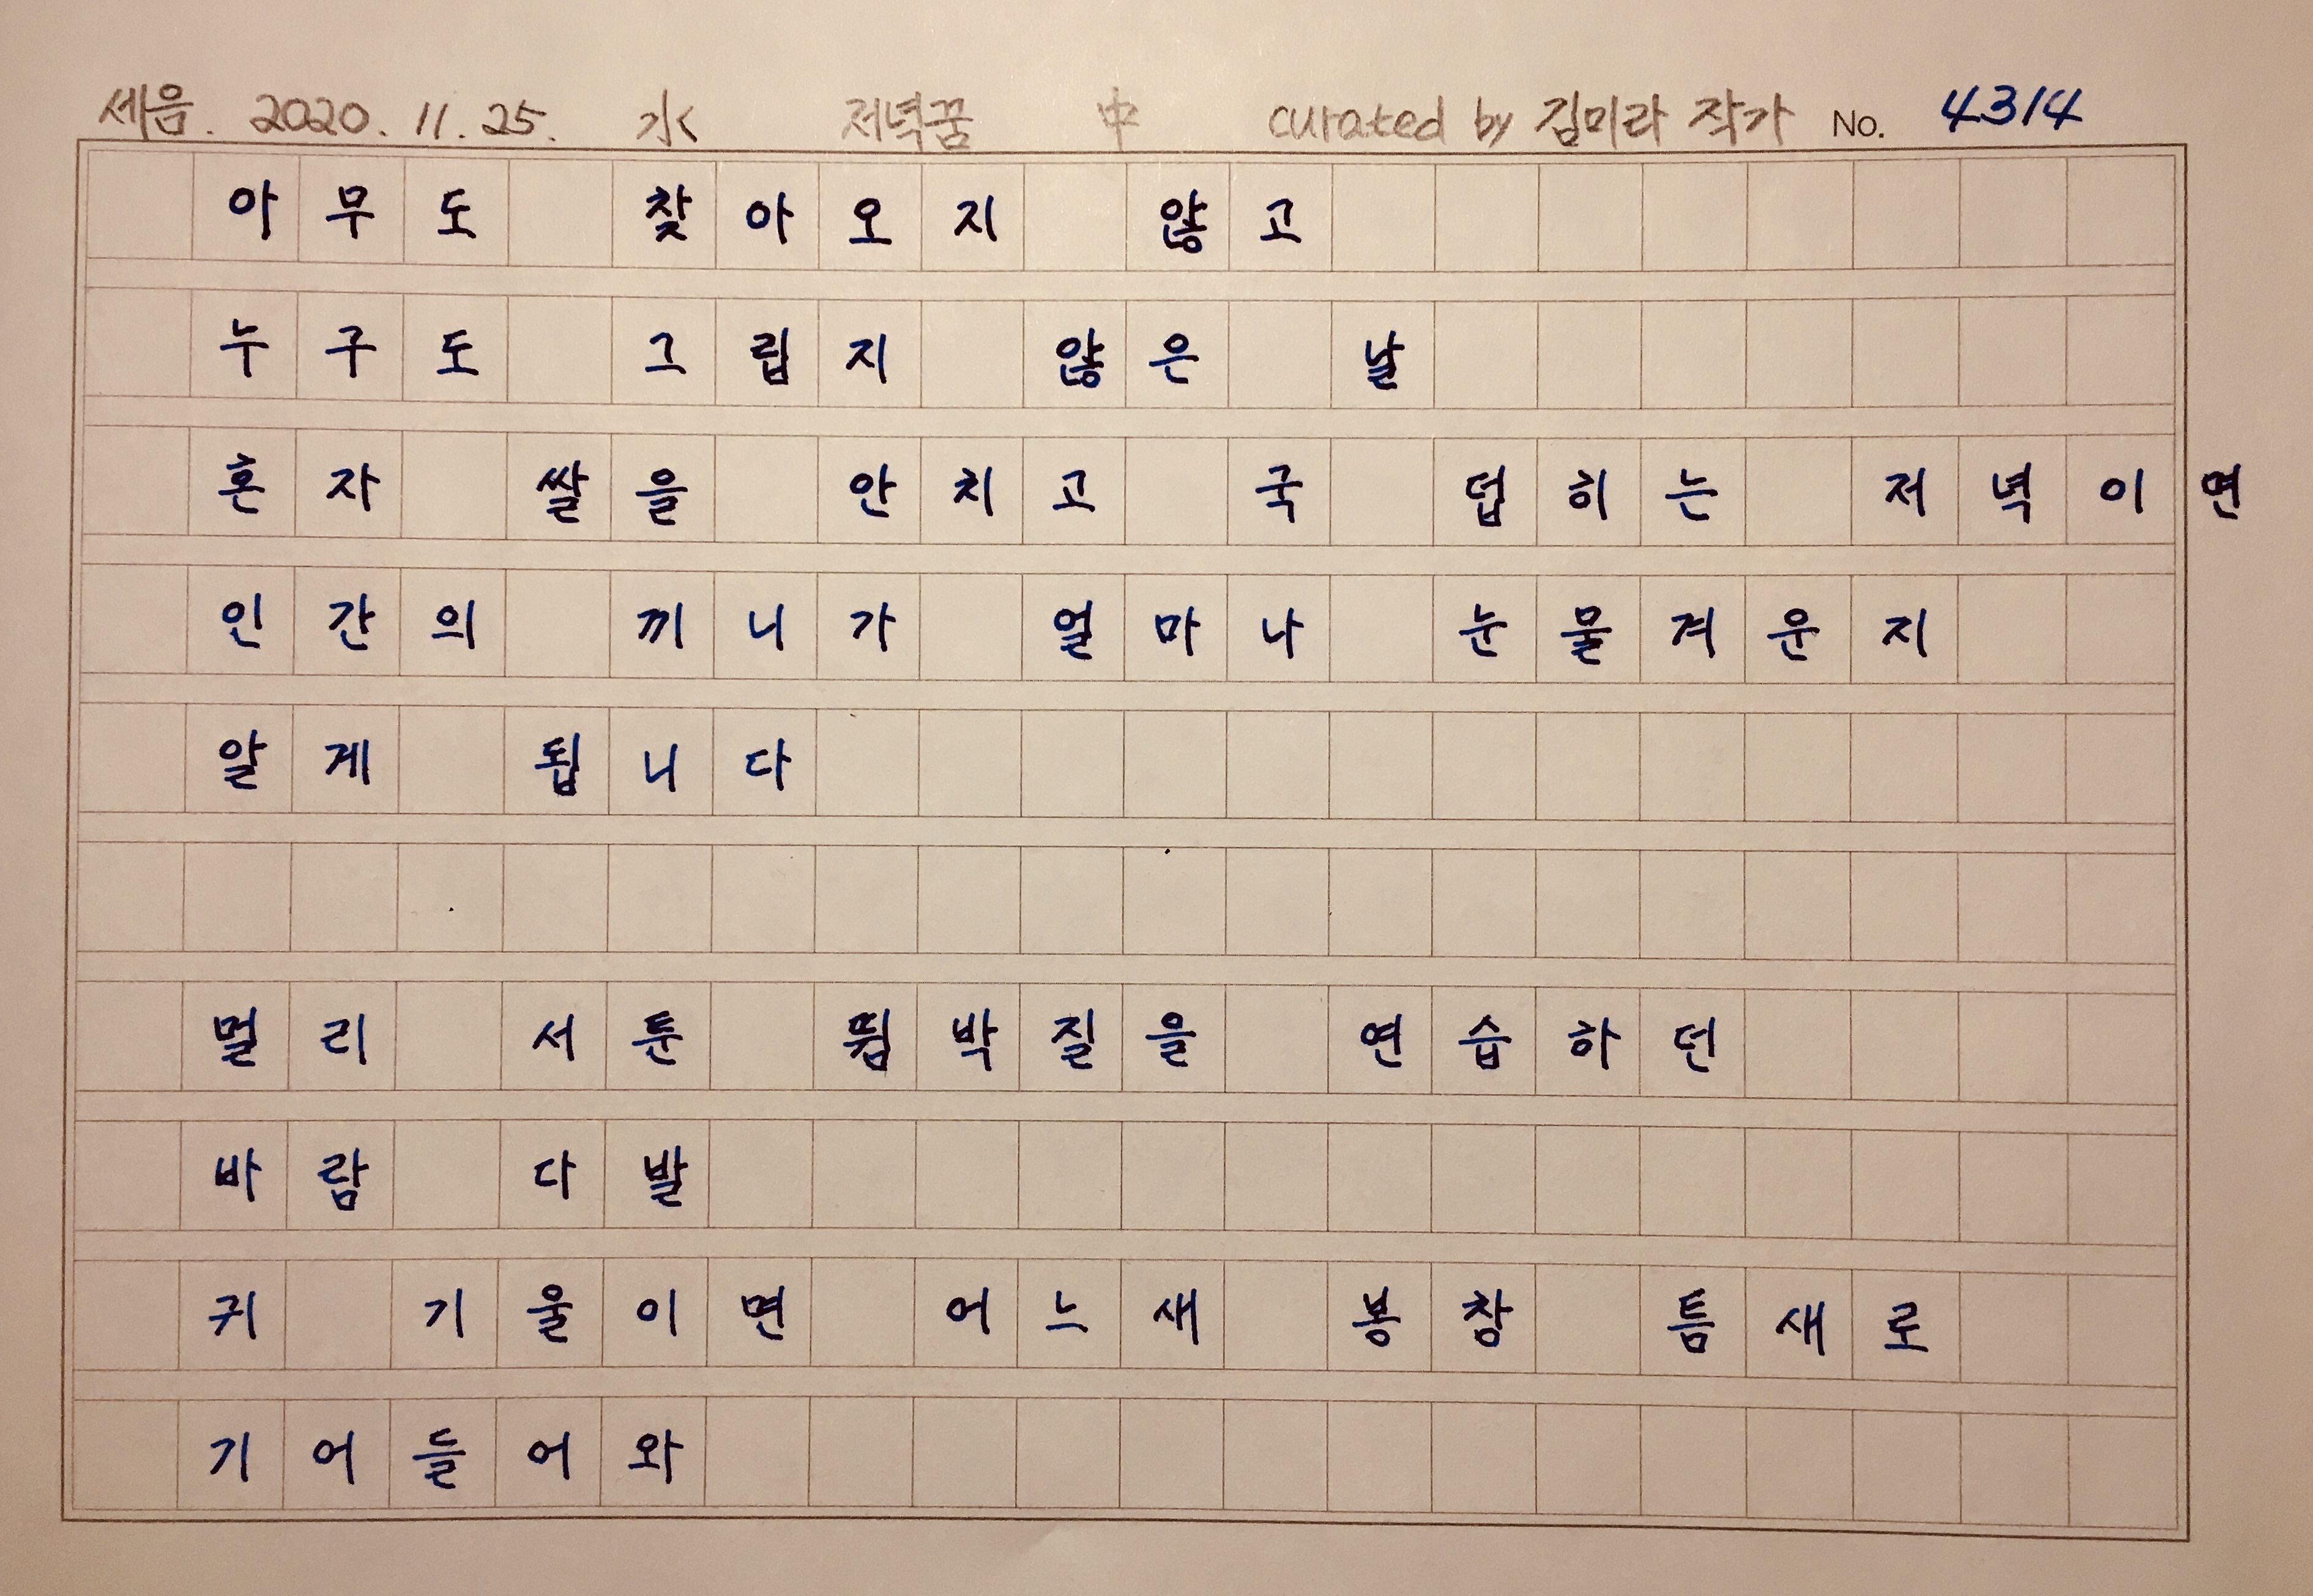 세음. 2020. 11. 25. 水 저녁꿈 中 curated by 김미라 작가 No. 4314
아무도 찾아오지 않고
누구도 그립지 않은 날
혼자 쌀을 안치고 국 덥히는 저녁이면
인간의 끼니가 얼마나 눈물겨운지
알게 됩니다
멀리 서툰 뜀박질을 연습하던
바람 다발
귀 기울이면 어느새 봉창 틈새로
기어들어와